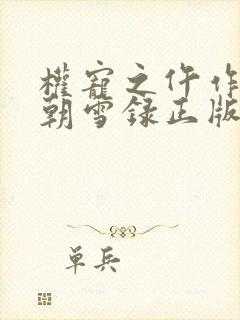 權寵之仵作
朝雪録正版
单兵